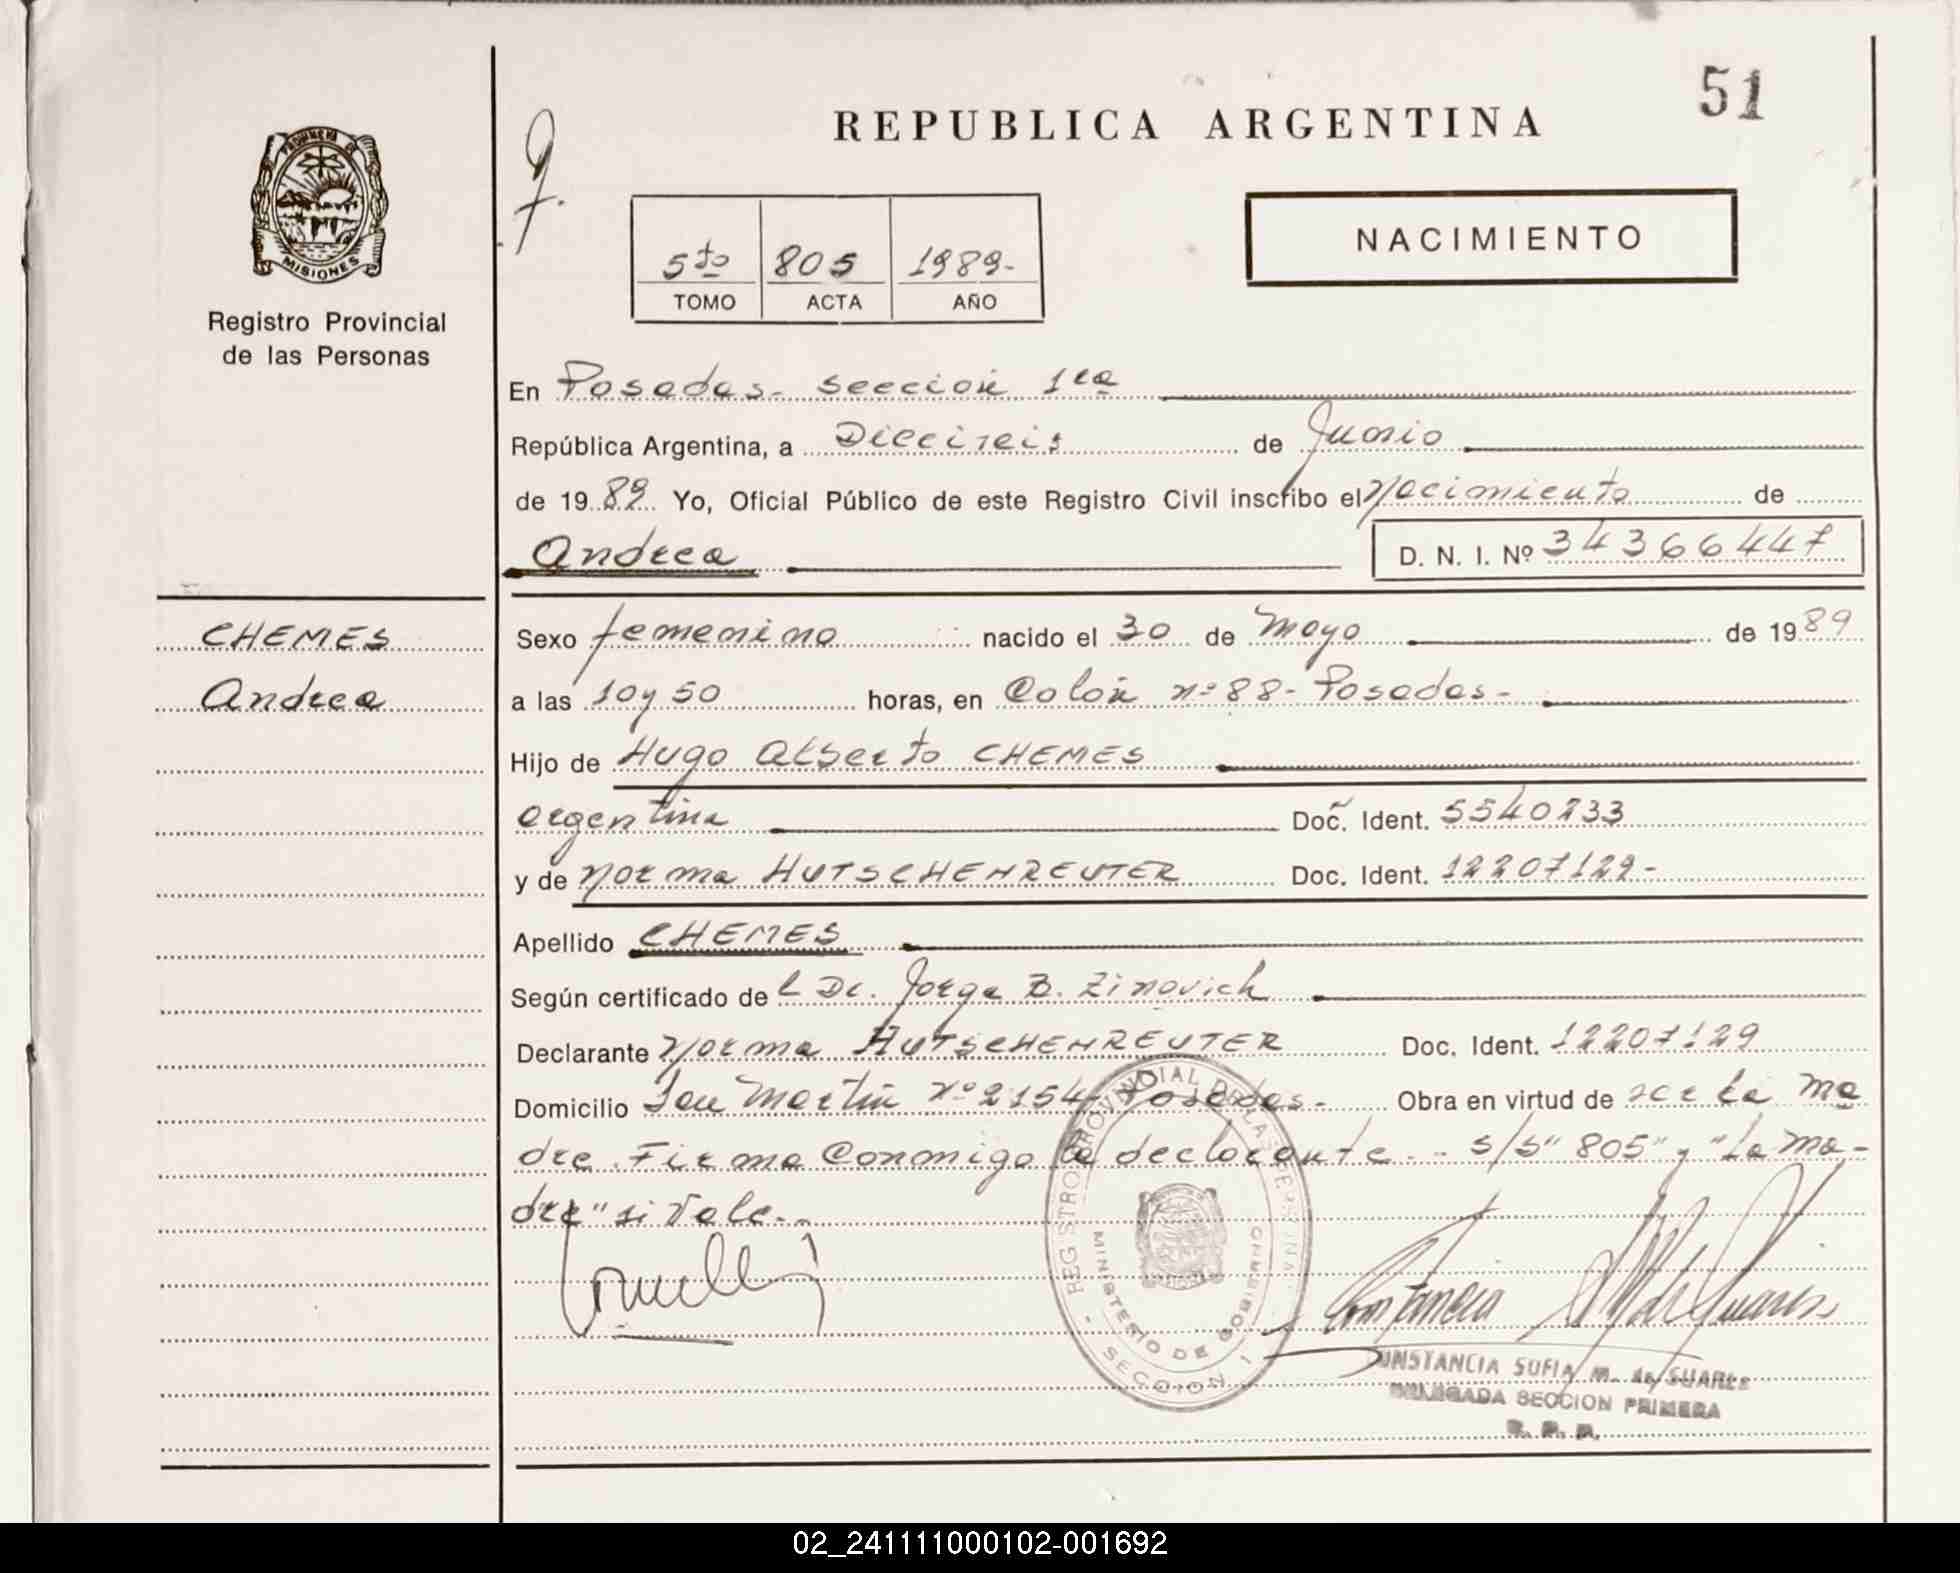 51
REPUBLICA ARGENTINA
NACIMIENTO
5to 805 1989-
TOMO ACTA AÑO
PROVINCIA DE
MISIONES
Registro Provincial
de las Personas
CHEMES
Andrea
En Posadas - Sección 1ra
República Argentina, a Dieciseis de Junio
de 1989 Yo, Oficial Público de este Registro Civil inscribo el Nacimiento de
Andrea D. N. I. Nº 34366447
Sexo femenino nacido el 30 de Mayo de 1989
a las 10 y 50 horas, en Colón nº 88 - Posadas -
Hijo de Hugo Alberto CHEMES
argentina Doc. Ident. 5540233
y de Norma HUTSCHENREUTER Doc. Ident. 12207129-
Apellido CHEMES
Según certificado de l Dr. Jorge B. Zinovich
Declarante Norma HUTSCHENREUTER Doc. Ident. 12207129
Domicilio San Martín Nº 2154 Posadas - Obra en virtud de ser la ma
dre. Firma Conmigo la declarante. - s/s "805" y "la ma-
dre" si Vale. -
REGISTRO PROVINCIAL DE LAS PERSONAS
MINISTERIO DE GOBIERNO
- SECCION 1
Constancia S M de Suarez
CONSTANCIA SOFIA M. de SUAREZ
DELEGADA SECCION PRIMERA
R. P. P.
02_241111000102-001692